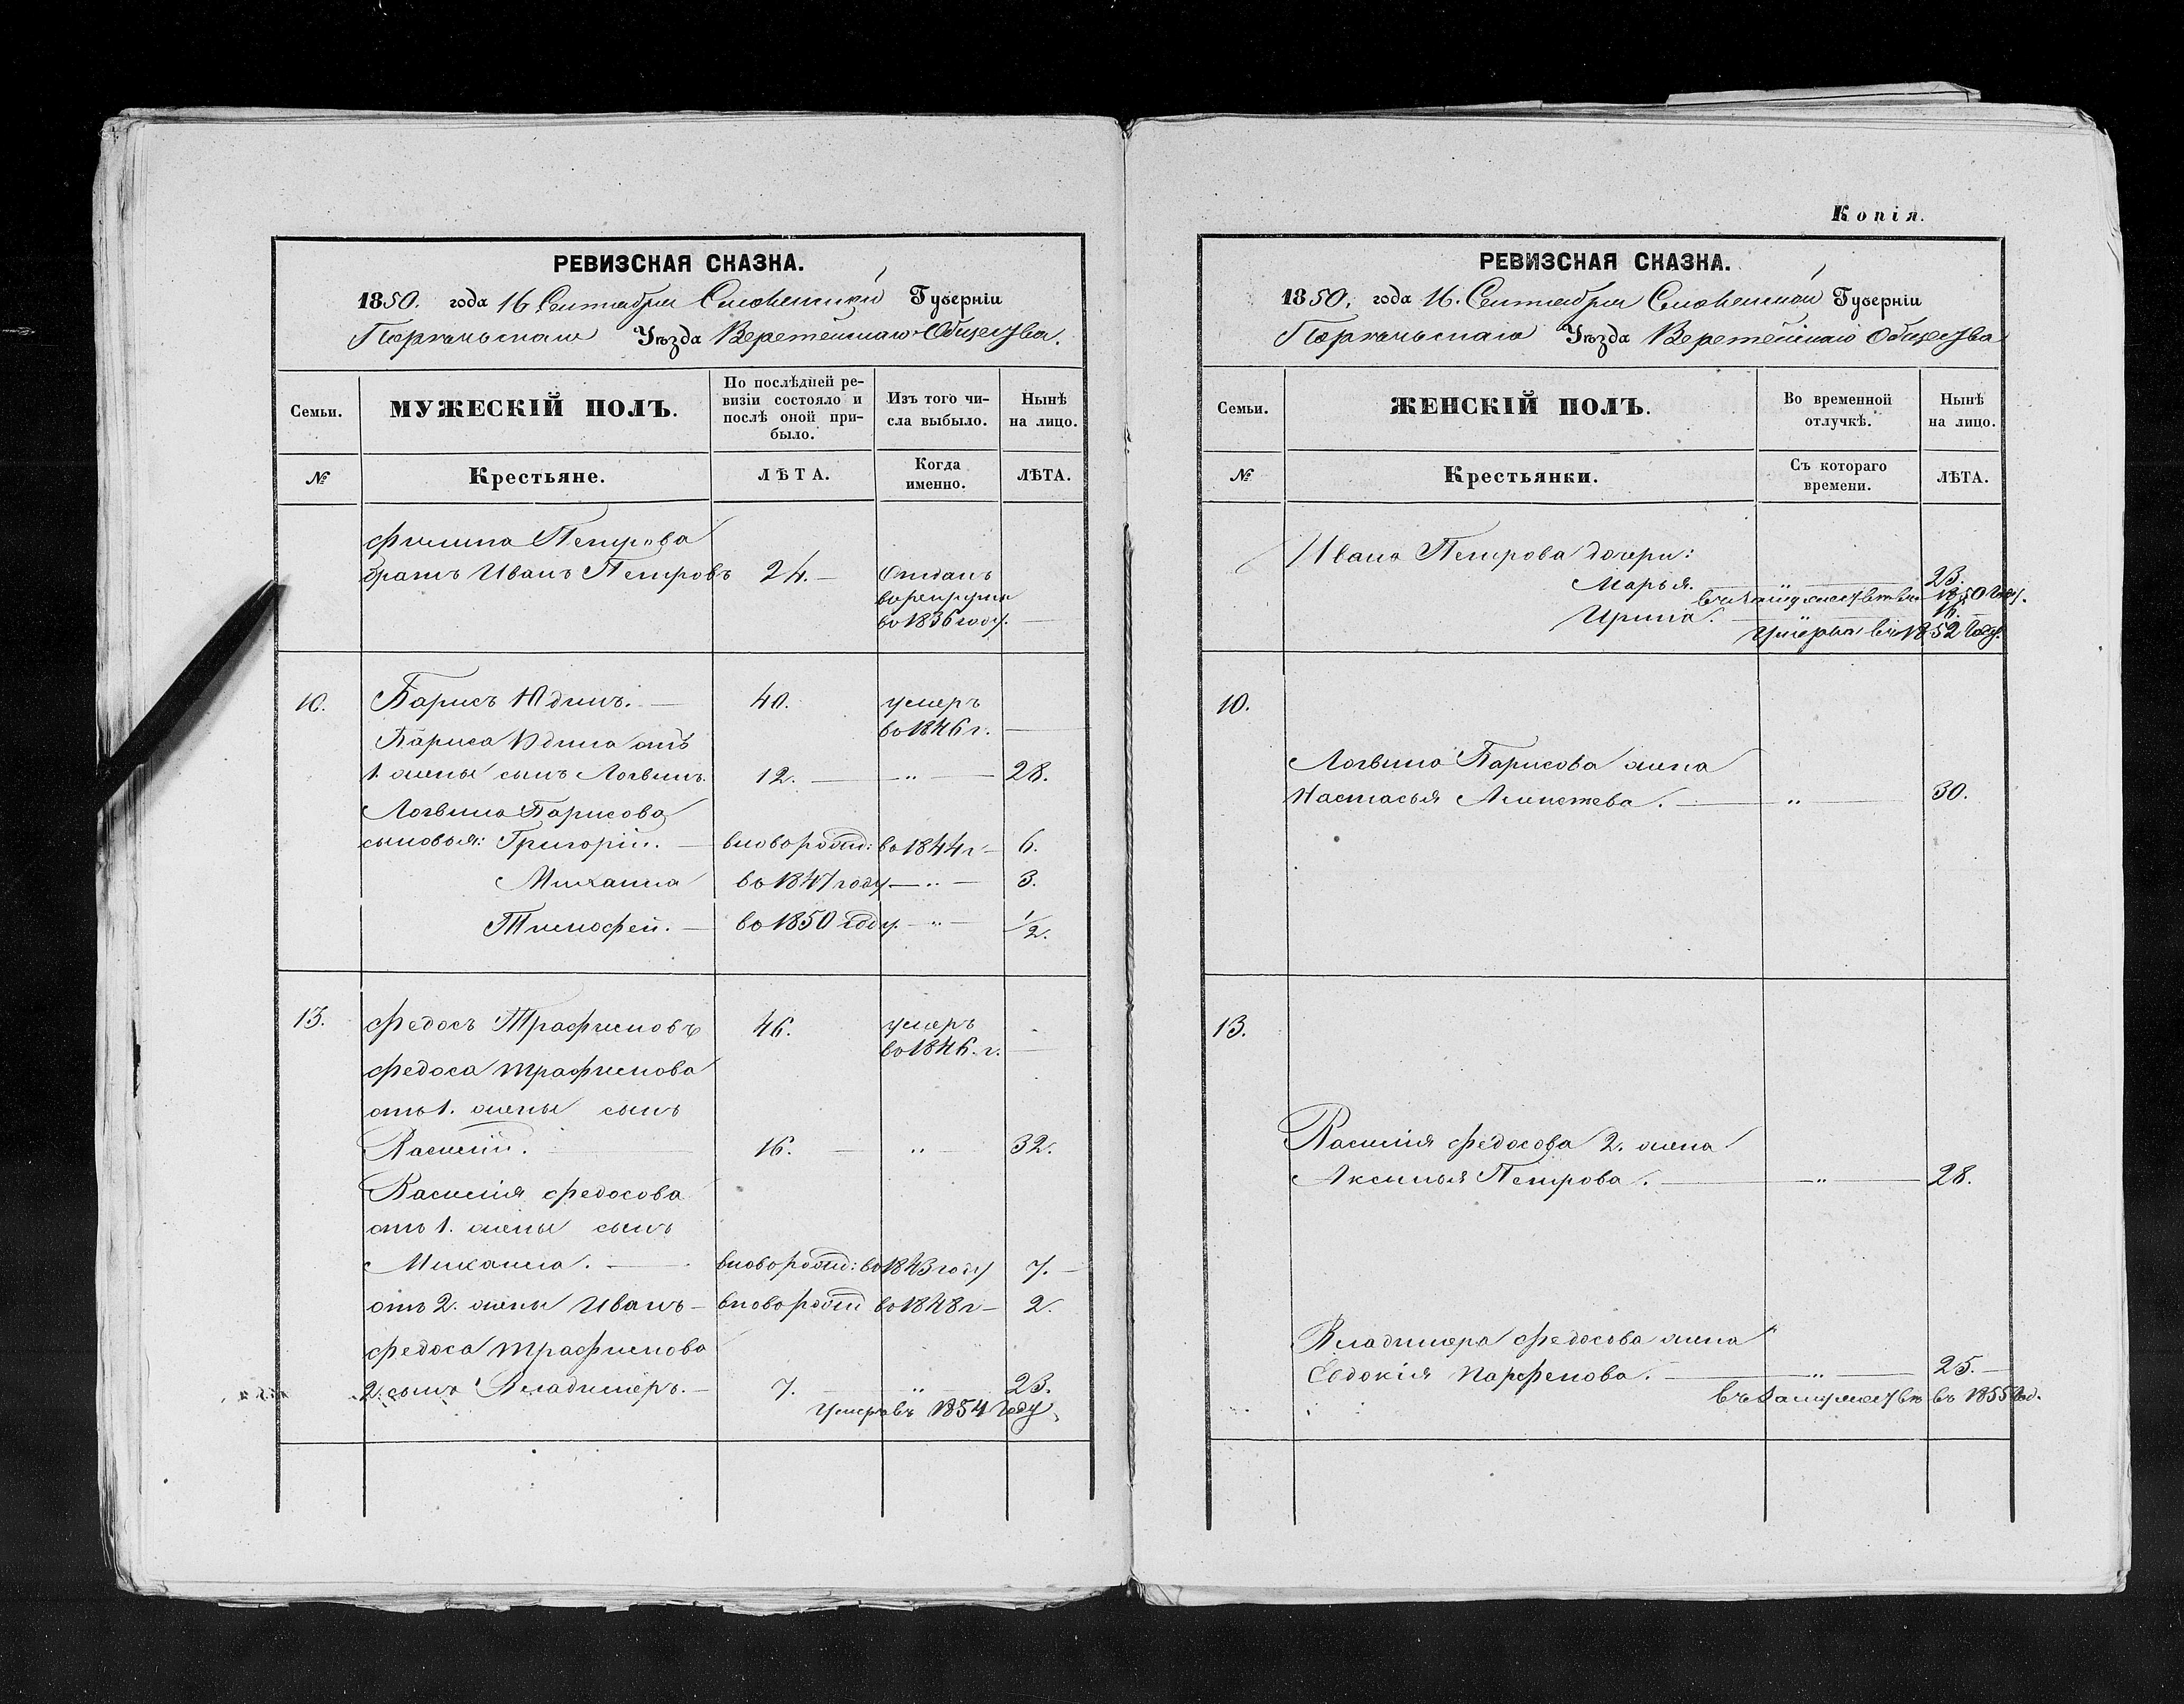 РЕВИЗСКАЯ СКАЗКА.
1850. года 16 Сентября Смоленской Губерніи
Порѣчьскаго Уѣзда Веретейскаго Общества.
Семьи.
МУЖЕСКІЙ ПОЛЪ.
По послѣдней ре-
визіи состояло и
послѣ оной при-
было.
Изъ того чи-
сла выбыло.
Нынѣ
на лицо.
№
Крестьяне.
ЛѢТА.
Когда
именно.
ЛѢТА.
Филипа Петрова
братъ Иванъ Петровъ 24. — Отданъ
в рекруты
во 1836 году. —
10. Барисъ Юдинъ. — 40. умеръ
во 1846 г. —
Бариса Юдина отъ
1. жены сынъ Логвинъ. 12. — „ — 28.
Логвина Барисова
сыновья: Григорій. — вново рожд: во 1844 г — 6.
Михаила во 1847 году — „ — 3.
Тимофей. — во 1850 году. — „ — 1/2.
13. Федосъ Трафимовъ 46. умеръ
во 1846. г. —
Федоса Трафимова
отъ 1. жены сынъ
Василій. — 16. — „ — 32.
Василія Федосова
отъ 1. жены сынъ
Михаила. — вново рожд: во 1843 году 7. —
отъ 2. жены Иванъ — вново рожд во 1848 г — 2.
Федоса Трафимова
2. сынъ Владимеръ. — 7. — „ — 23.
Умеръ въ 1854 Году.
Копія.
РЕВИЗСКАЯ СКАЗКА.
1850. года 16. Сентября Смоленской Губерніи
Порѣчьскаго Уѣзда Веретейскаго Общества
Семьи.
ЖЕНСКІЙ ПОЛЪ.
Во временной
отлучкѣ.
Нынѣ
на лицо.
№
Крестьянки.
Съ котораго
времени.
ЛѢТА.
Ивана Петрова дочери:
Марья. — „ — 23.
въ замужествѣ 1850 Году.
Ирина. — „ — 16.
Умерла въ 1852 Году.
10.
Логвина Барисова жена
Настасья . — „ — 30.
13.
Василія Федосова 2. жена
Аксинья Петрова. — „ — 28.
Владимера Федосова жена
Евдокія Парфенова. — „ — 25. —
въ замужествѣ въ 1855 Год.